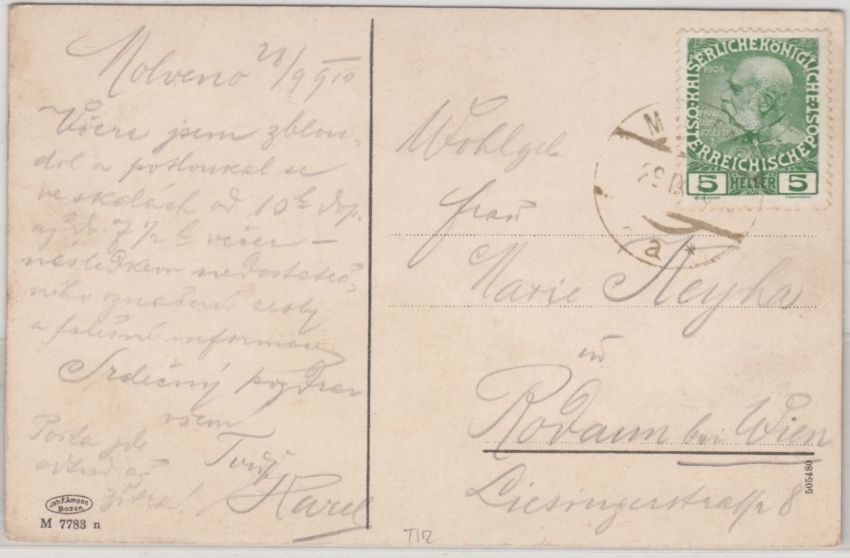 Molveno 28/9 910
Včera jsem zblou-
dil a potloukal se
ve skalách od 10 h dop.
až do 7 1/2 h večer –
následkem nedostateč-
ného označení cesty
a falešné informace
Srdečný pozdrav
všem
Tvůj
Karel
Pošta jde
odtud až
zítra!
Joh. F. Amonn
Bozen.
M 7783 n
KAISERLICHE KÖNIGLICHE ÖSTERREICHISCHE POST
1908
FRANZ
JOSEF I
5 HELLER 5
M
29 IX
a *
Wohlgeb
Frau
Marie Kleyha
in
Rodaun bei Wien
Liesingerstraße 8
505480
TIR